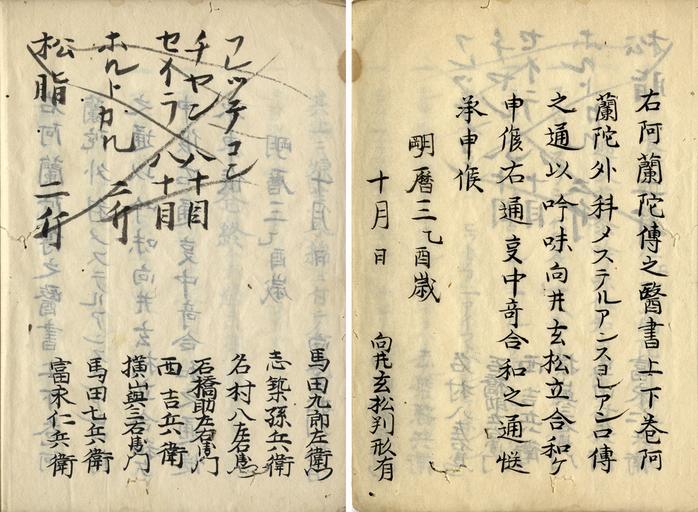 右阿蘭陀傳之醫書上下巻阿
蘭陀外科メステルアンスヨレアン口傳
之通以吟味向井玄松立合和ケ
申候右通吏中奇合和之通慥
承申候
明暦三乙酉歳
十月日
向井玄松判形有
フレッテコン
チヤン 八十目
セイラ 八十目
ホルトカル 二斤
松脂 二斤
馬田九郎左衛
志築孫兵衛
名村八左
石橋助左右衛門
西吉兵衛
横山與三右衛門
馬田七兵衛
富永仁兵衛